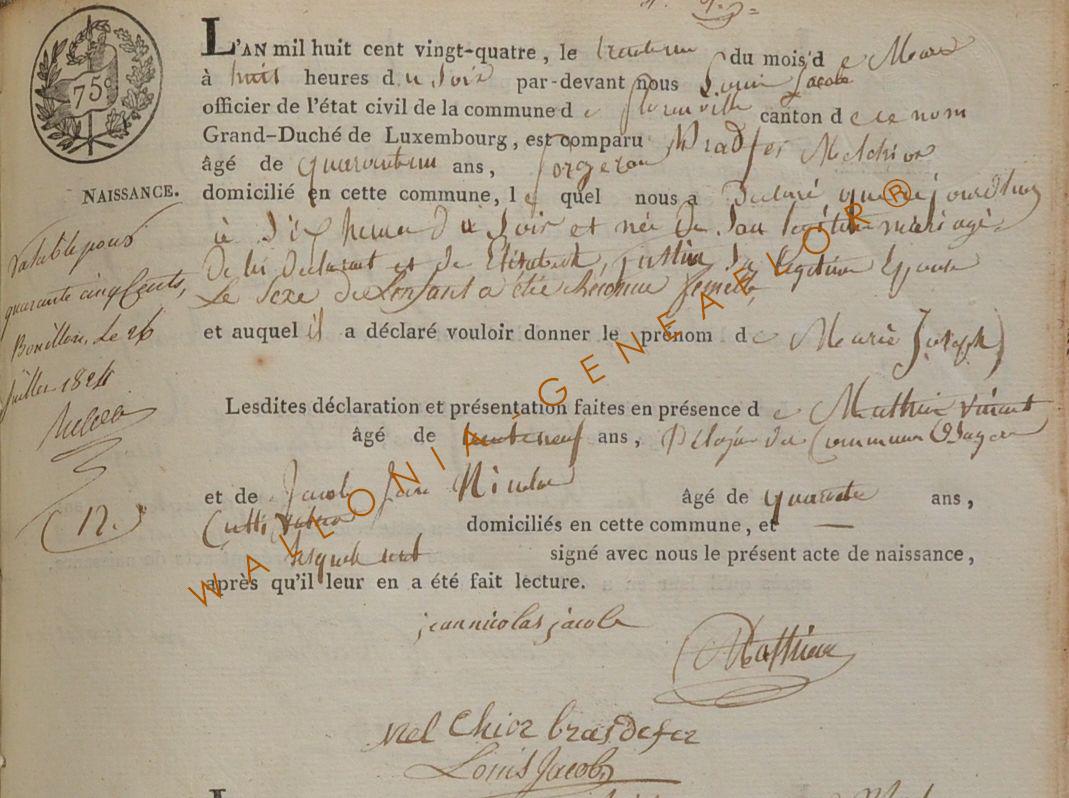 75c
L'AN mil huit cent vingt-quatre, le trente un du mois d e Mars
à huit heures d u Soir par-devant nous Louis Jacob
officier de l'état civil de la commune d e florenville canton d e ce nom
Grand-Duché de Luxembourg, est comparu Bradfer Melchior
âgé de quarante un ans, forgeron
NAISSANCE.
domicilié en cette commune, le quel nous a Declaré que ce jourdhuy
à Six heures Du Soir et née De Son légitime mariage
De lui Declarant et de Elisabeth, justine Sa légitime Epouse
Le Sexe de L'enfant a été reconnu femelle,
et auquel il a déclaré vouloir donner le prénom d e Marie Joseph
Lesdites déclaration et présentation faites en présence d e Mathieu vincent
âgé de trente neuf ans,
et de Jacob Jean Nicolas âgé de quarante ans,
Cultivateur domiciliés en cette commune, et
lesquels ont signé avec nous le présent acte de naissance,
après qu'il leur en a été fait lecture.
jean nicolas jacob
Mathieu
mel Chior bras de fer
Louis Jacob
pour
quarante cinq Cents,
Bouillon, le 26
juillet 1824
(12.)
WALLONIA GENEAELOR®